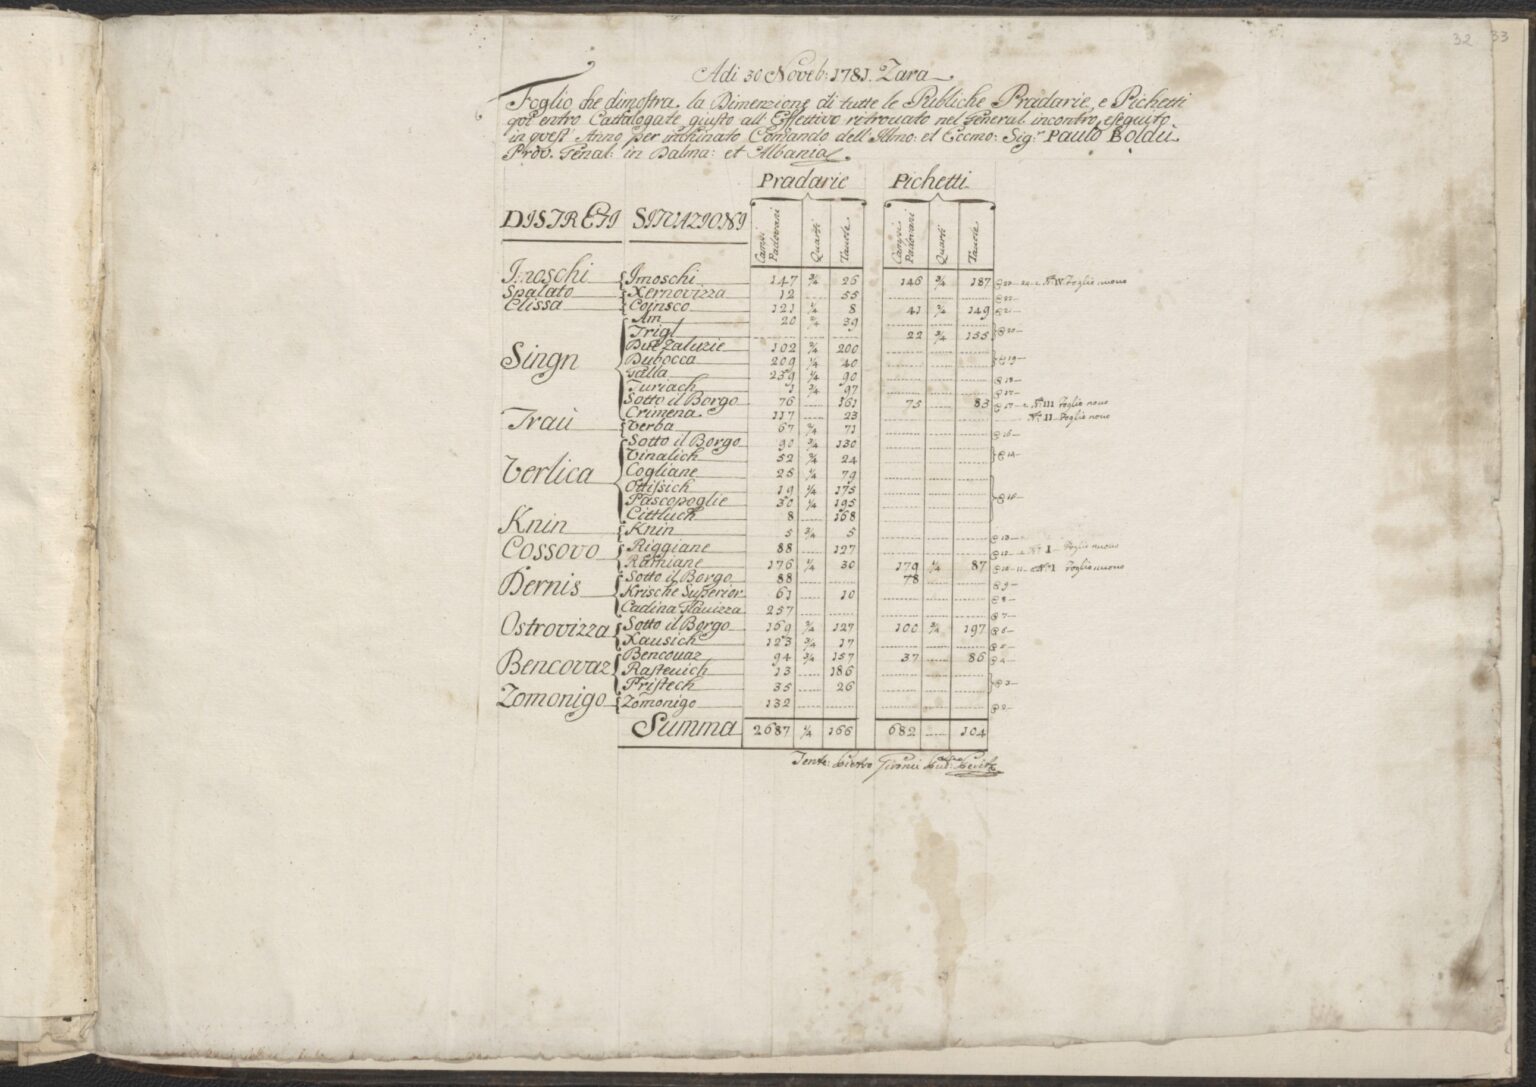 32 33
Adi 30 Noveb: 1781. Zara
Foglio che dimostra la Dimenzione di tutte le Publiche Pradarie, e Pichetti
qui entro Cattalogate giusto all' Effettivo ritrouato nel General incontro, eseguito
in quest' Anno per inchinato Comando dell' Illmo: et Eccmo: Sigr. Paulo Boldù
Prov. Genal: in Dalma: et Albania.
Pradarie Pichetti
DISTRETI SITUAZIONI Campi Padovani Quarti Tauole Campi Padovani Quarti Tauole
Imoschi Imoschi 147 3/4 26 146 3/4 187 22 N.o IV Foglio nuouo
Spalato Xernovizza 12 55 22
Clissa Coinsco 121 1/4 8 41 149 21
Singn Am 20 39 20
Trigl 22 3/4 155
Zaluzie 102 200
Dubocca 209 40 19
Galla 239 1/4 90 18
Turiach 1 3/4 97 17
Sotto il Borgo 76 161 75 83 17 N.o III Foglio nouo
Crimena 117 23 N.o II Foglio nouo
Traù Verba 67 71
Verlica Sotto il Borgo 90 3/4 130 14
Vinalich 52 24
Cogliane 25 1/4 79
Ottissich 19 1/4 175
Pascopoglie 30 1/4 195
Cittluch 8 168
Knin Knin 5 3/4 5 13
Cossovo Riggiane 88 127 12 N.o I Foglio nuouo
Ramiane 176 1/4 30 179 1/4 87 N.o I Foglio nuouo
Dernis Sotto il Borgo 88 78 9
Krische Superior 61 10 8
Cadina Glauizza 257 7
Ostrovizza Sotto il Borgo 169 127 100 197 6
Xausich 123 3/4 17 5
Bencovaz Bencouaz 94 3/4 157 37 86 4
Rasteuich 13 186 3
Pristech 35 26
Zomonigo Zomonigo 132 2
Summa 2687 1/4 166 682 104
Tente: Pietro